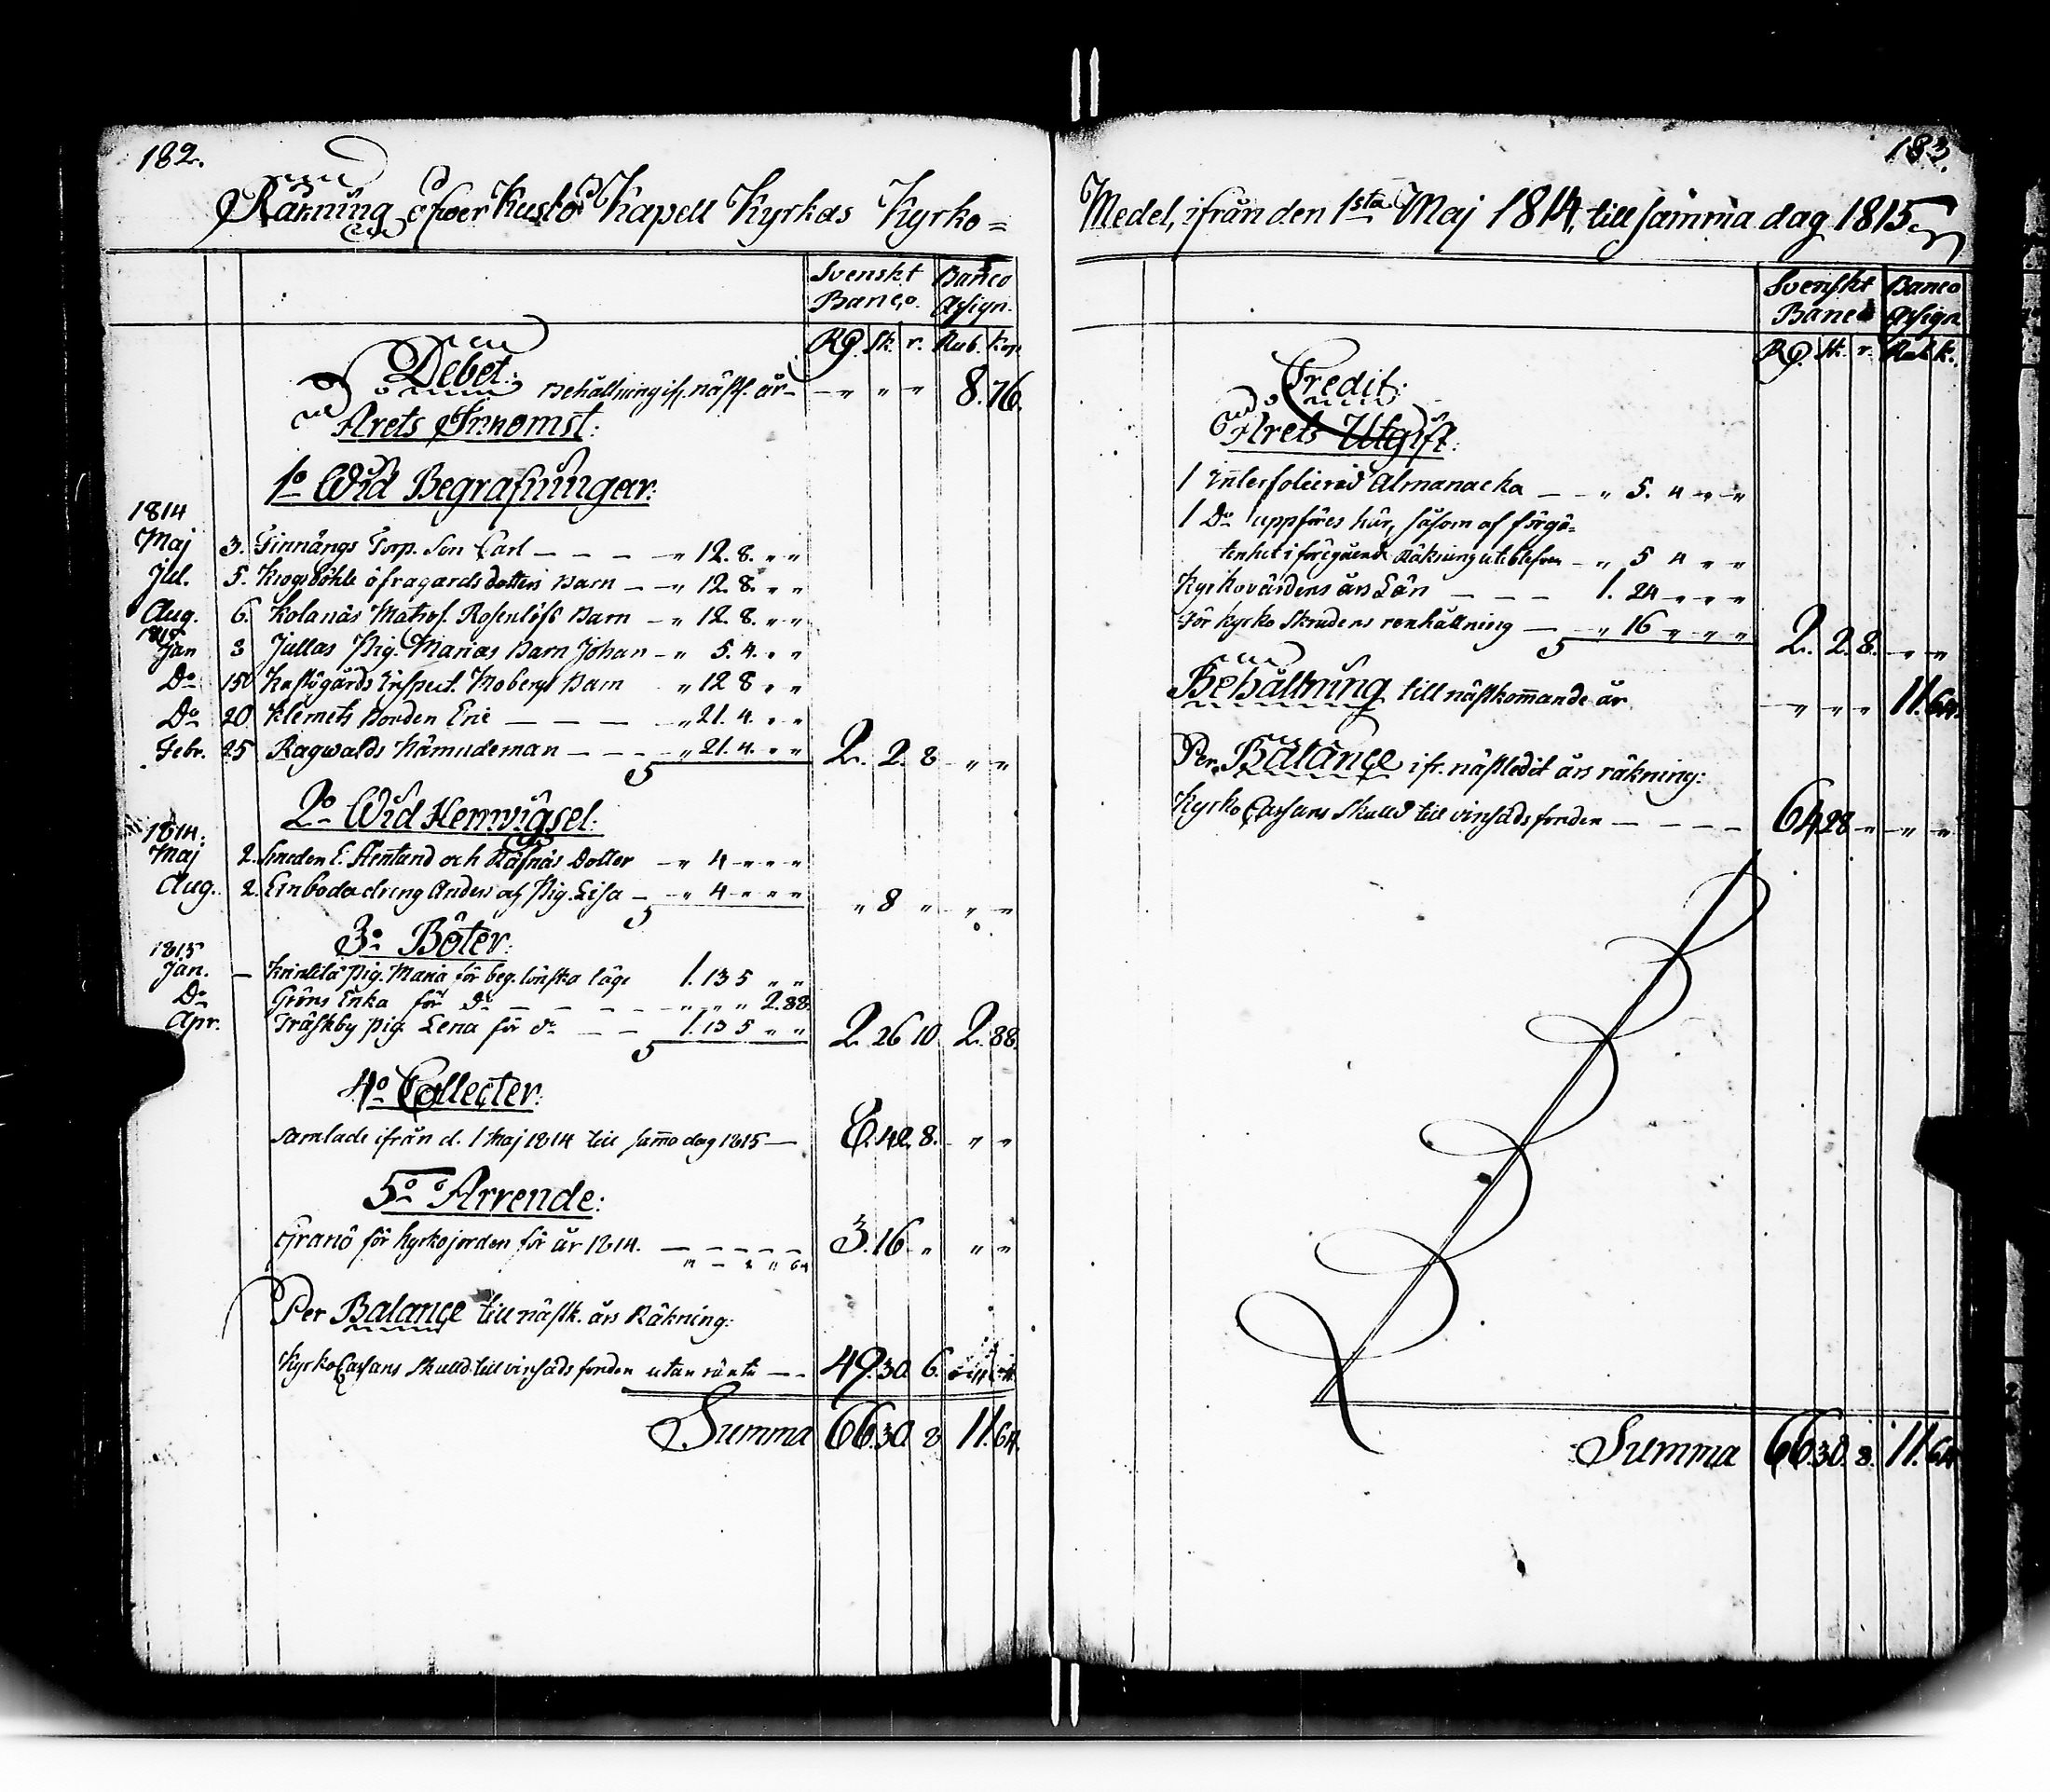 182.
Räkning öfver Kustö Kapell Kyrkas Kyrko=
Svenskt Banco
Banco. Assign.
Rd. sk. r. Rub. Kop.
Debet: Behållning ifr. nästl. år — " " " 8.76.
Årets Inkomst:
1o Wid Begrafningar:
1814
Maj 3. Finnängs Torp. Son Carl — — — " 12. 8. " "
Jul. 5. Krogsböhle öfragards dotters Barn — " 12. 8. " "
Aug. 6. Kolanäs Matros. Rosenlöfs Barn — " 12. 8. " "
1815
Jan 3 Jullas Pig. Marias Barn Johan — " 5. 4. " "
Do 15 Kustögårds Inspect. Mobergs Barn " 12 8 " "
Do 20 Klemets Bonden Eric — — — " 21. 4. " "
Febr. 25 Ragwalds Hämndeman — — — " 21. 4. " " 2. 2. 8 " "
2o Wid Hemvigsel:
1814.
Maj 2. Smeden E. Stenland och Räfnäs Dotter — " 4 " " "
Aug. 2. Einboda dreng Anders och Pig. Lisa — " 4 " " " " 8 " " "
3o Böter:
1815
Jan. — Pig. Maria för beg. lönska läge 1. 13 5 " "
Do Gröns Enka för Do — — — " " " 2.88.
Apr. Träskby Pig. Lena för do — — 1. 13 5 " " 2. 26 10 2. 88.
4o Collecter:
Samlade ifrån d. 1 Maj 1814 till samma dag 1815 — 6. 42. 8. " "
5o Arrende:
Granö för kyrkojorden för år 1814. — — — — — 3. 16 " " "
Per Balance till nästk. års Räkning:
Kyrko Cassans Skuld till vinsäds fonden utan ränta — — 49. 30 6.
Summa 66. 30. 8 11. 64.
183.
Medel, ifrån den 1sta Maj 1814, till samma dag 1815.
Svenskt Banco
Banco Assign
Rd. sk. r. Rub. k.
Credit:
Årets Utgift:
1 interfolierad Almanacka — — " 5. 4 " "
1 Do uppföres här, såsom af förgä=
tenhet i föregående Räkning uteblefven — " 5 4 " "
Kyrkovärdens års Lön — — — 1. 24 " " "
För kyrko Skrudens renhållning — " 16 " " " 2. 2. 8. " "
Behållning till nästkommande år " " " 11. 64.
Per Balance ifr. nästledit års räkning:
Kyrko Cassans Skuld till vinsäds fonden — — — — 64 28 " " "
Summa 66. 30. 8. 11. 64